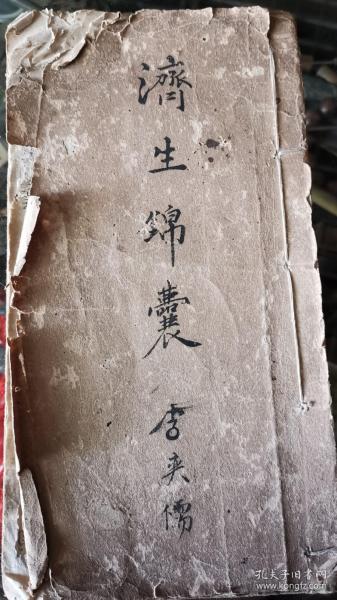 濟生錦囊
李奕儒
孔夫子旧书网
www.kongfz.com